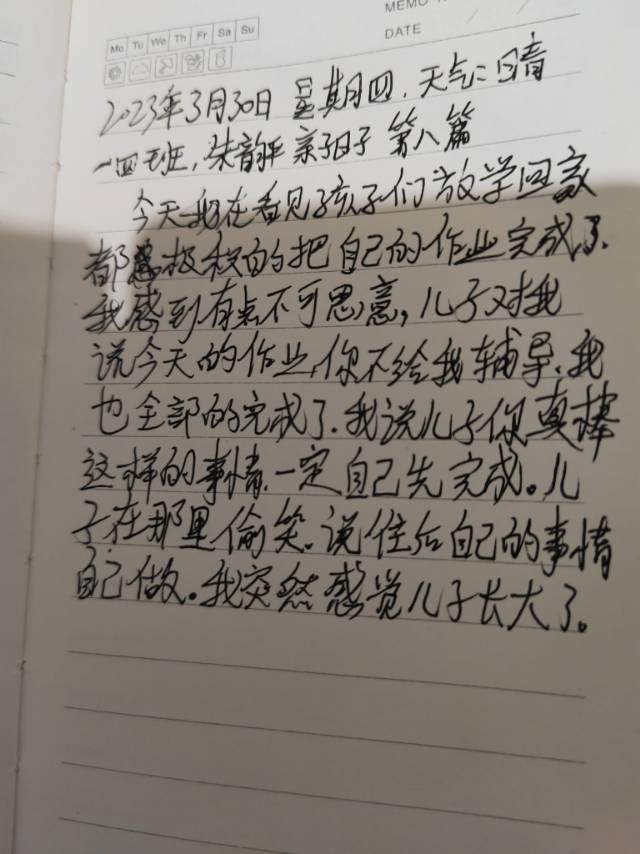 MEMO
Mo Tu We Th Fr Sa Su
DATE
2023年3月30日 星期四. 天气:晴
一四班, 朱韵 亲子日子 第八篇
今天我在看见孩子们放学回家
都极积的把自己的作业完成了.
我感到有点不可思意, 儿子对我
说今天的作业,你不给我辅导.我
也全部的完成了.我说儿子你真棒
这样的事情.一定自己先完成。儿
子在那里偷笑.说住后自己的事情
自己做。我突然感觉儿子长大了。